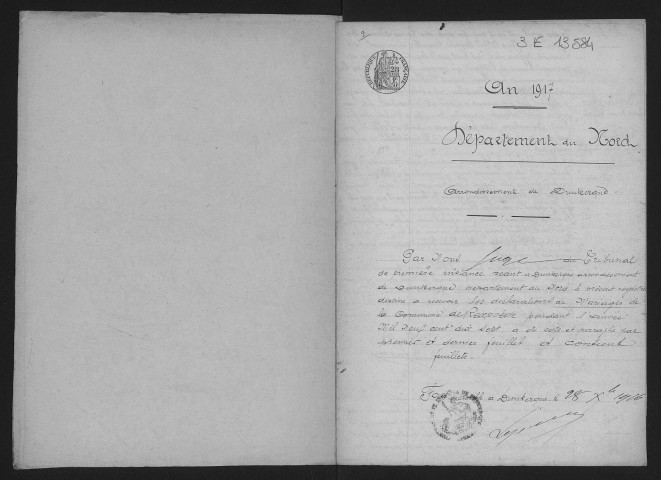 3 E 13584
An 1917
Département du Nord
Arrondissement de Dunkerque
Par Nous Juge du Tribunal
de première instance séant à Dunkerque arrondissement
de Dunkerque département du Nord le présent registre
destiné à recevoir les déclarations de Mariages de
la Commune de pendant l'année
Mil Neuf cent dix sept a été coté et paraphé par
premier et dernier feuillet et contient
feuillets.
à Dunkerque le 28 Xbre 1916